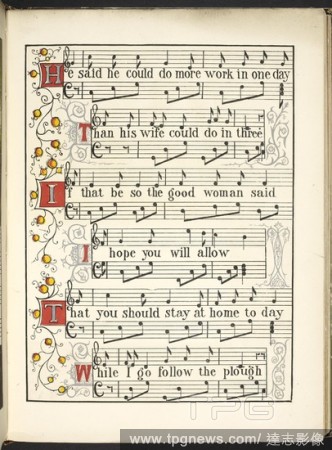 He said he could do more work in one day
Than his wife could do in three
I that be so the good woman said
I hope you will allow
That you should stay at home to day
While I go follow the plough
TPG
www.tpgnews.com/達志影像